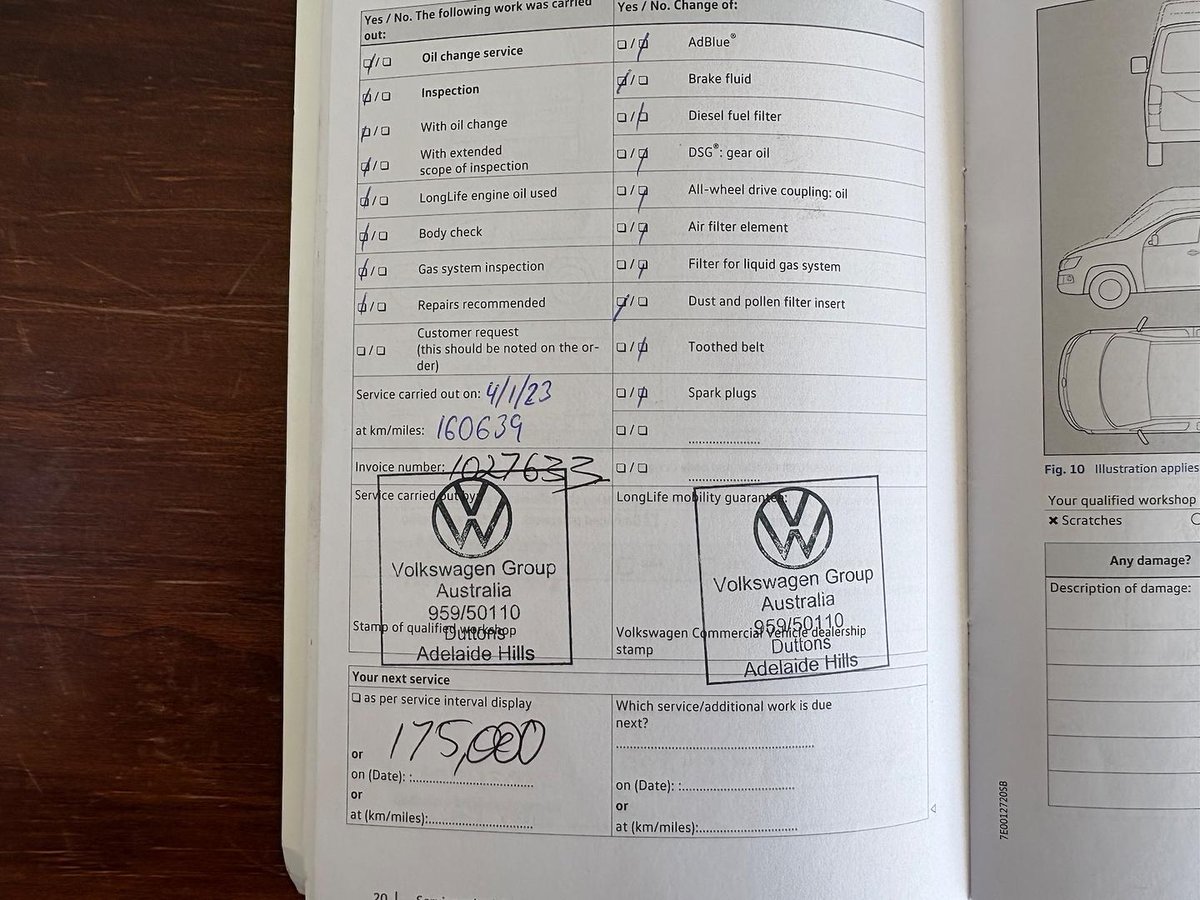 Yes / No. The following work was carried out:
☑/☐ Oil change service
☑/☐ Inspection
☑/☐ With oil change
☑/☐ With extended
scope of inspection
☑/☐ LongLife engine oil used
☑/☐ Body check
☑/☐ Gas system inspection
☑/☐ Repairs recommended
☐/☐ Customer request
(this should be noted on the or-
der)
Service carried out on: 4/1/23
at km/miles: 160639
Invoice number: 1027633
Service carried out by:
Volkswagen Group
Australia
959/50110
Duttons
Adelaide Hills
Stamp of qualified workshop
Yes / No. Change of:
☐/☑ AdBlue®
☑/☐ Brake fluid
☐/☑ Diesel fuel filter
☐/☑ DSG®: gear oil
☐/☑ All-wheel drive coupling: oil
☐/☑ Air filter element
☐/☑ Filter for liquid gas system
☑/☐ Dust and pollen filter insert
☐/☑ Toothed belt
☐/☑ Spark plugs
☐/☐ ....................
☐/☐ ....................
LongLife mobility guarantee:
Volkswagen Group
Australia
959/50110
Duttons
Adelaide Hills
Volkswagen Commercial Vehicle dealership
stamp
Your next service
☐ as per service interval display
175,000
or
on (Date): :..............................
or
at (km/miles):..........................
Which service/additional work is due
next?
..................................................
on (Date): :............................
or
at (km/miles):.........................
20
Fig. 10 Illustration applies
Your qualified workshop
✖ Scratches
Any damage?
Description of damage:
7E0012720SB